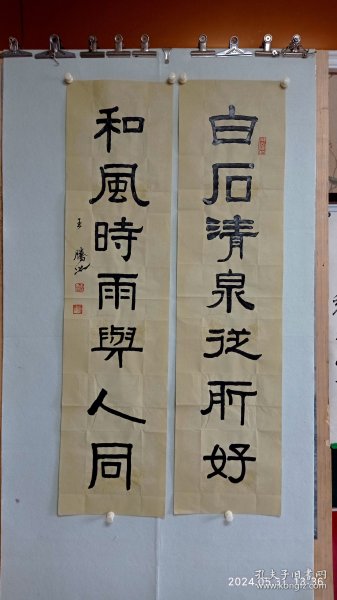 白石清泉从所好
和風時雨與人同
王
孔夫子旧书网
2024.05.31 13:36